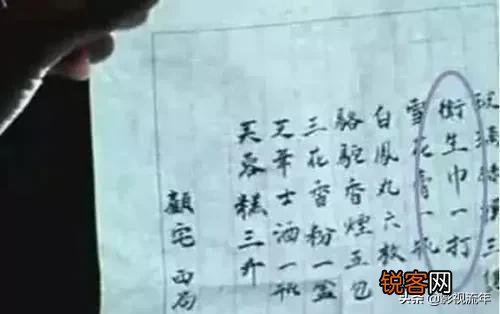 衛生巾一打
雪花膏一瓶
白鳳丸六枚
駱駝香煙五包
三花香粉一盒
芝華士酒一瓶
芙蓉糕三斤
顧宅
锐客网
头条 @影视流年